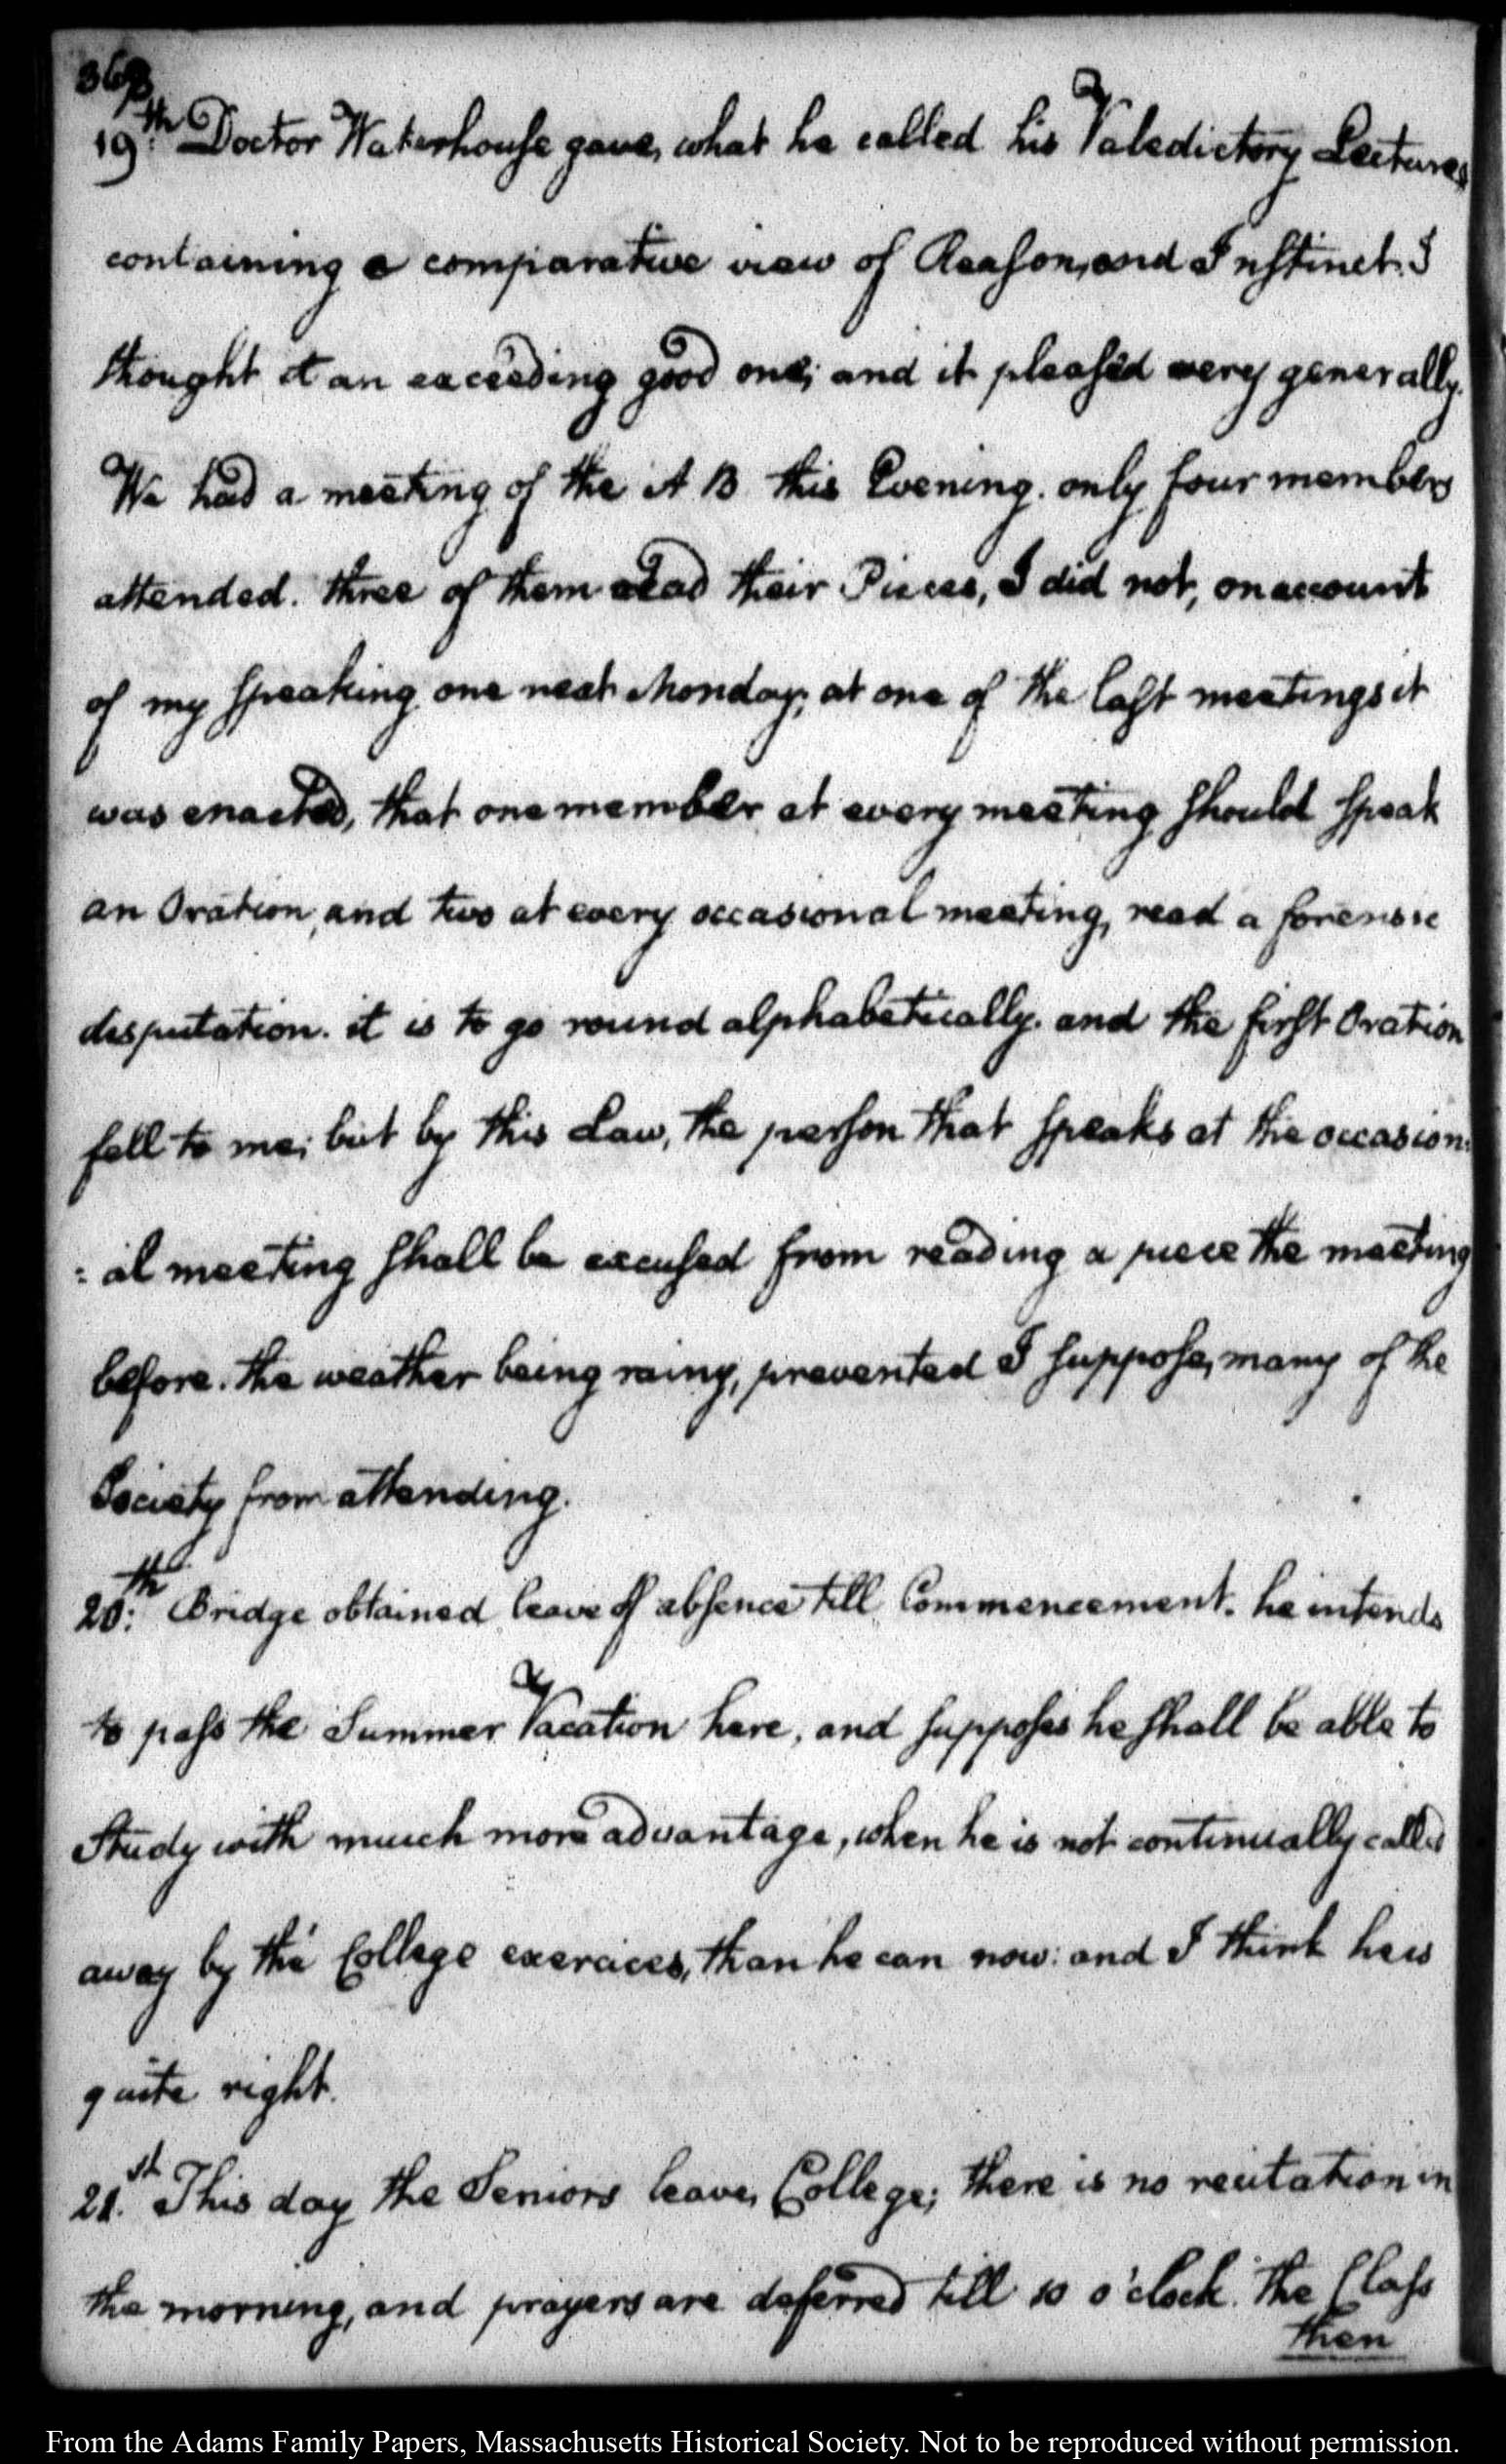 368
19.th Doctor Waterhouse gave, what he called his Valedictory Lecture,
containing a comparative view of Reason, and Instinct. I
thought it an exceeding good one; and it pleased very generally.
We had a meeting of the A B this Evening. only four members
attended. three of them read their Pieces, I did not, on account
of my speaking one next Monday; at one of the last meetings it
was enacted, that one member at every meeting should speak
an Oration, and two at every occasional meeting, read a forensic
disputation. it is to go round alphabetically. and the first Oration
fell to me; but by this Law, the person that speaks at the occasion:
:al meeting shall be excused from reading a piece the meeting
before. the weather being rainy, prevented I suppose, many of the
Society from attending.
20:th Bridge obtained leave of absence till Commencement. he intends
to pass the Summer Vacation here, and supposes he shall be able to
Study with much more advantage, when he is not continually called
away by the College exercices, than he can now: and I think he is
quite right.
21.st This day the Seniors leave, College; there is no recitation in
the morning, and prayers are deferred till 10 o'clock. The Class
then
From the Adams Family Papers, Massachusetts Historical Society. Not to be reproduced without permission.